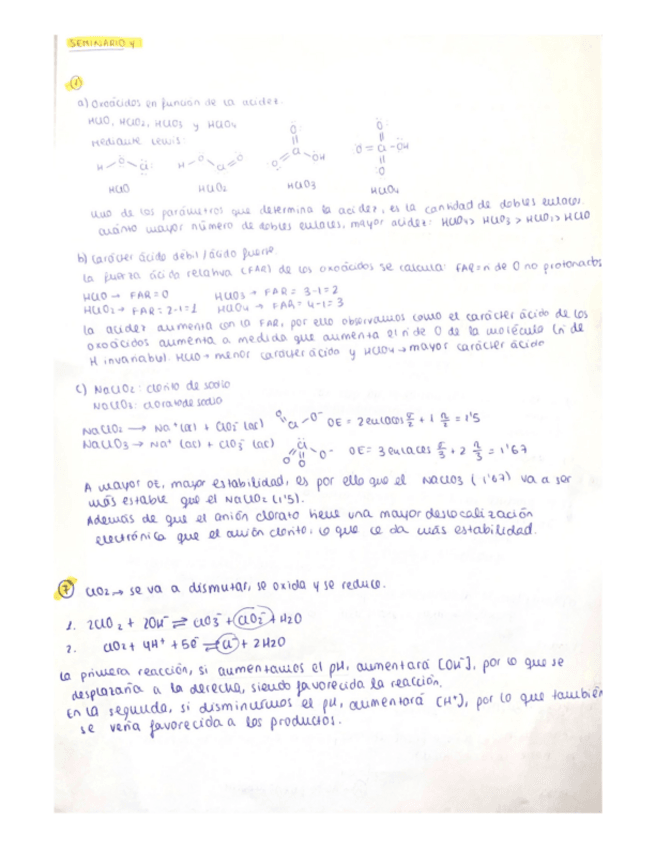 SEMINARIO 4
1
a) Oxoácidos en función de la acidez.
HClO, HClO2, HClO3 y HClO4
Mediante Lewis:
H O Cl H O Cl O O Cl O OH O O Cl OH O
HClO HClO2 HClO3 HClO4
Uno de los parámetros que determina la acidez, es la cantidad de dobles enlaces.
cuánto mayor número de dobles enlaces, mayor acidez: HClO4 > HClO3 > HClO2 > HClO
b) Carácter ácido débil / ácido fuerte.
La fuerza ácido relativa (FAR) de los oxoácidos se calcula: FAR = n de O no protonados
HClO → FAR = 0 HClO3 → FAR = 3-1=2
HClO2 → FAR = 2-1=1 HClO4 → FAR = 4-1=3
La acidez aumenta con la FAR, por ello observamos como el carácter ácido de los
oxoácidos aumenta a medida que aumenta el n de O de la molécula (n de
H invariable). HClO → menor carácter ácido y HClO4 → mayor carácter ácido
c) NaClO2: clorito de sodio
NaClO3: clorato de sodio
NaClO2 → Na+ (ac) + ClO2- (ac) O Cl O- OE = 2 enlaces σ/2 + 1 π/2 = 1'5
NaClO3 → Na+ (ac) + ClO3- (ac) O Cl O O- OE = 3 enlaces σ/3 + 2 π/3 = 1'67
A mayor OE, mayor estabilidad, es por ello que el NaClO3 (1'67) va a ser
más estable que el NaClO2 (1'5).
Además de que el anión clorato tiene una mayor deslocalización
electrónica que el anión clorito, lo que le da más estabilidad.
7 ClO2 → se va a dismutar, se oxida y se reduce.
1. 2ClO2 + 2OH- ⇌ ClO3- + ClO2- + H2O
2. ClO2 + 4H+ + 5e- ⇌ Cl- + 2H2O
La primera reacción, si aumentamos el pH, aumentará [OH-], por lo que se
desplazaría a la derecha, siendo favorecida la reacción.
En la segunda, si disminuimos el pH, aumentará [H+], por lo que también
se vería favorecida a los productos.